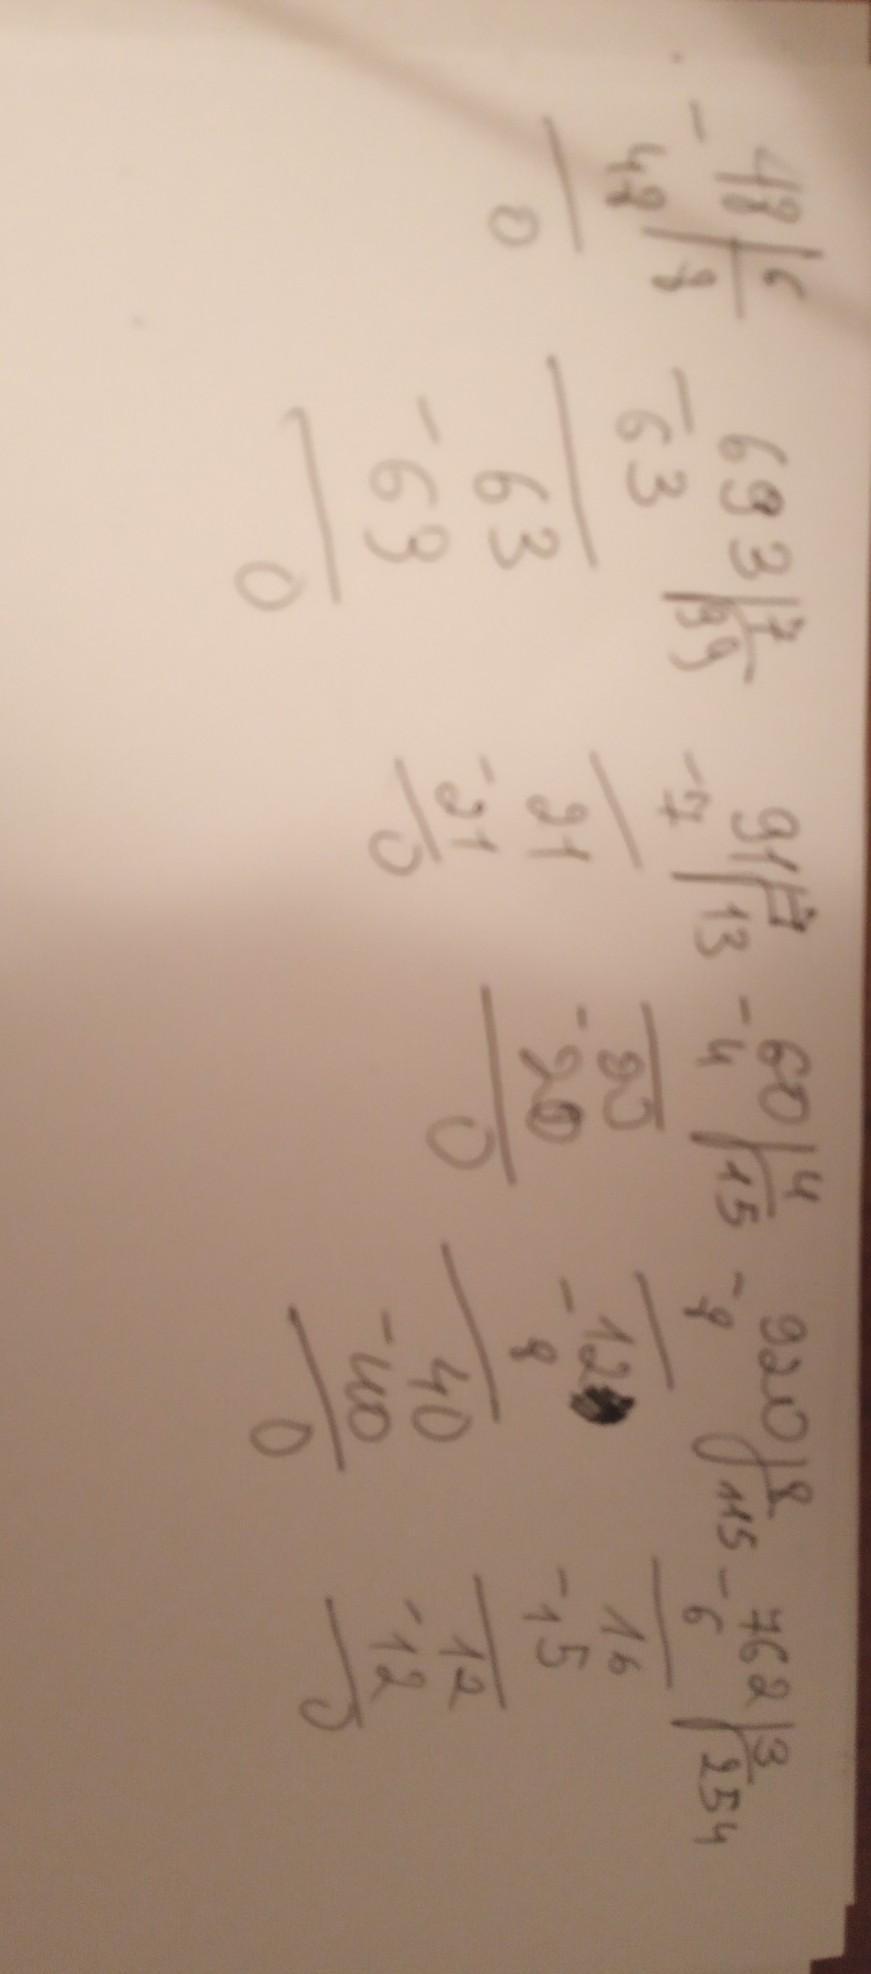 48|6
- 48|8
0
693|7
-63|99
63
-63
0
91|7
-7|13
21
-21
0
60|4
-4|15
20
-20
0
920|8
-8|115
12
-8
40
-40
0
762|3
-6|254
16
-15
12
-12
0